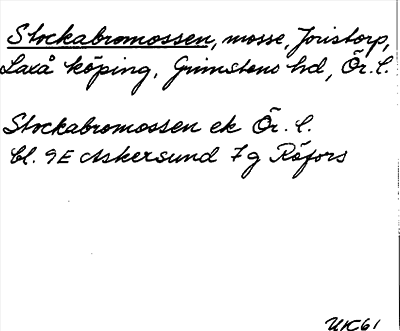 Stockabromossen, mosse, Joristorp,
Laxå köping, Grimstens hd, Ör. l.
Stockabromossen ek Ör. l.
bl. 9E Askersund 7g Röfors
UK61